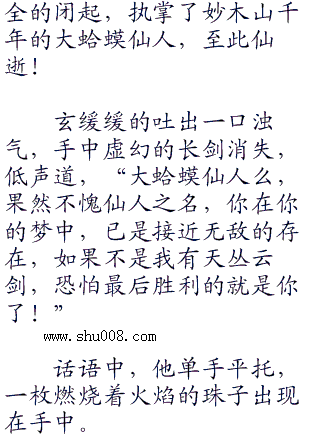 全的闭起，执掌了妙木山千
年的大蛤蟆仙人，至此仙
逝！
玄缓缓的吐出一口浊
气，手中虚幻的长剑消失，
低声道，“大蛤蟆仙人么，
果然不愧仙人之名，你在你
的梦中，已是接近无敌的存
在，如果不是我有天丛云
剑，恐怕最后胜利的就是你
了！”
www.shu008.com
话语中，他单手平托，
一枚燃烧着火焰的珠子出现
在手中。